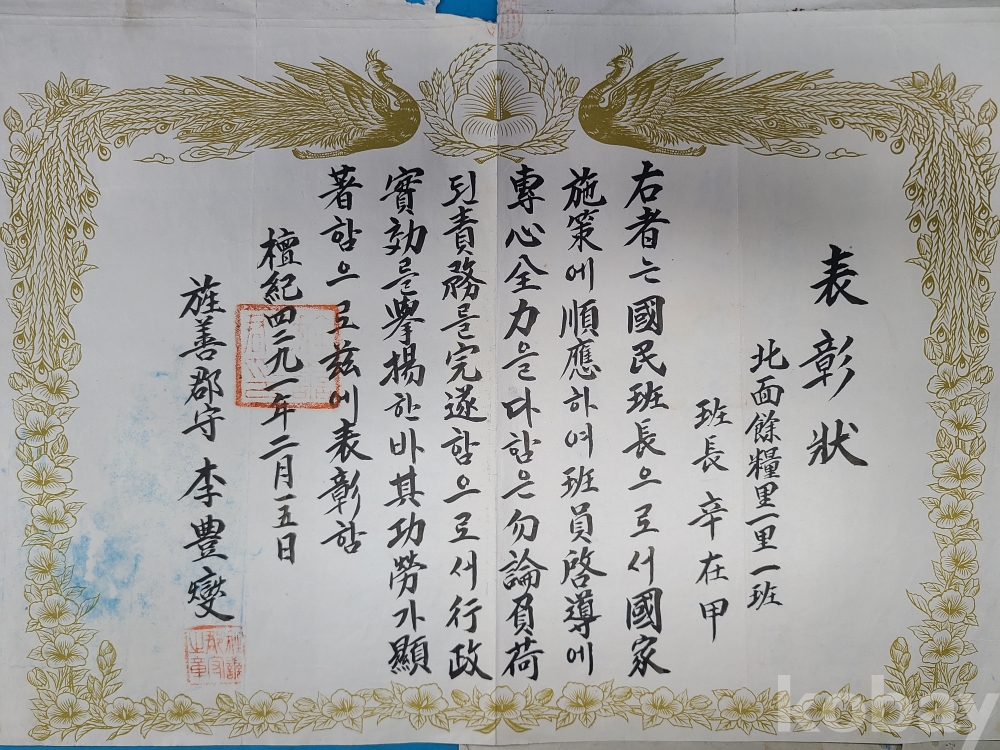 表彰狀
北面餘糧里一里一班
班長 辛在甲
右者는國民班長으로서國家
施策에順應하여班員啓導에
專心全力을다함은勿論負荷
된責務를完遂함으로서行政
實効를擧揚한바其功勞가顯
著함으로玆에表彰함
檀紀四二九一年二月一五日
旌善郡守 李豊燮
kobay